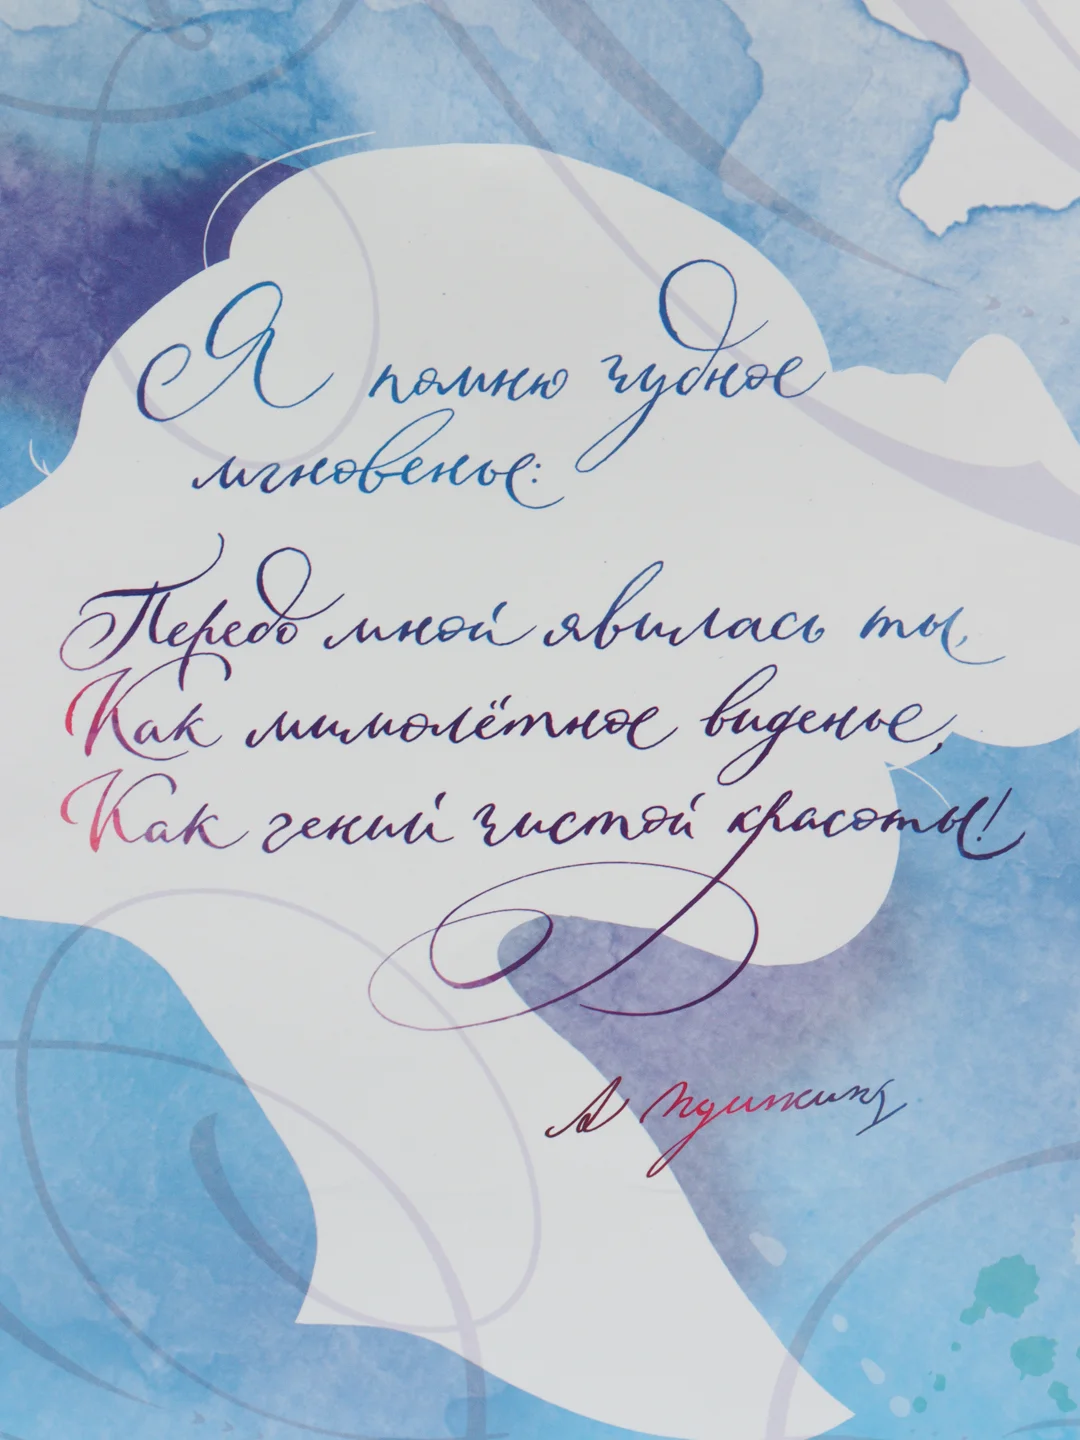 Я помню чудное
мгновенье:
Передо мной явилась ты,
Как мимолётное виденье,
Как гений чистой красоты!
А Пушкинъ